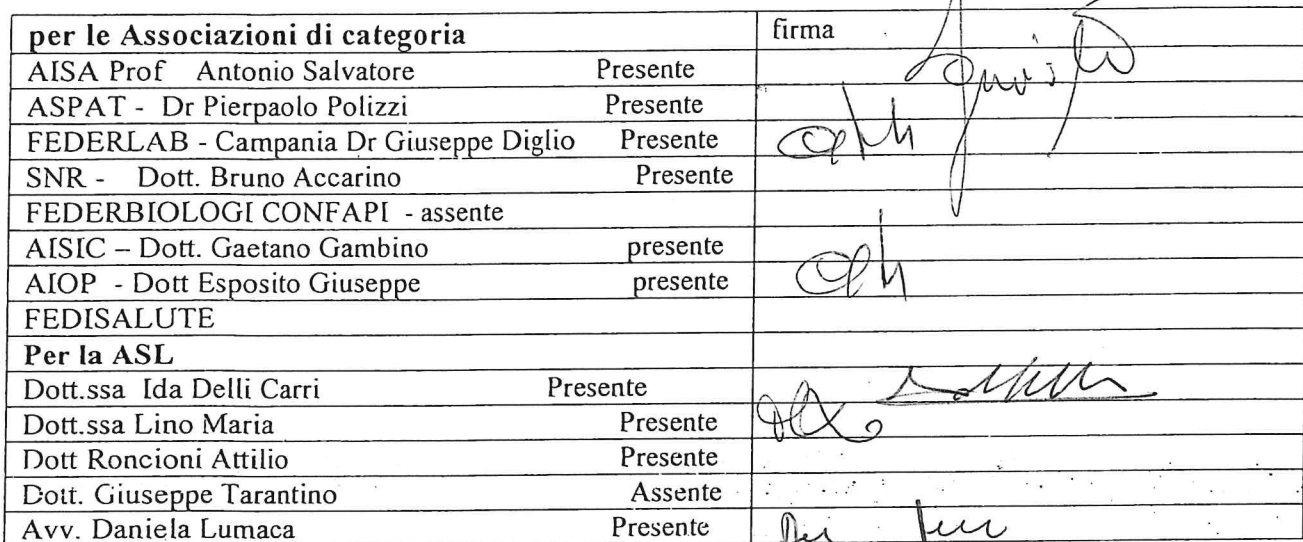 per le Associazioni di categoria firma
AISA Prof Antonio Salvatore Presente
ASPAT - Dr Pierpaolo Polizzi Presente
FEDERLAB - Campania Dr Giuseppe Diglio Presente
SNR - Dott. Bruno Accarino Presente
FEDERBIOLOGI CONFAPI - assente
AISIC – Dott. Gaetano Gambino presente
AIOP - Dott Esposito Giuseppe presente
FEDISALUTE
Per la ASL
Dott.ssa Ida Delli Carri Presente
Dott.ssa Lino Maria Presente
Dott Roncioni Attilio Presente
Dott. Giuseppe Tarantino Assente
Avv. Daniela Lumaca Presente